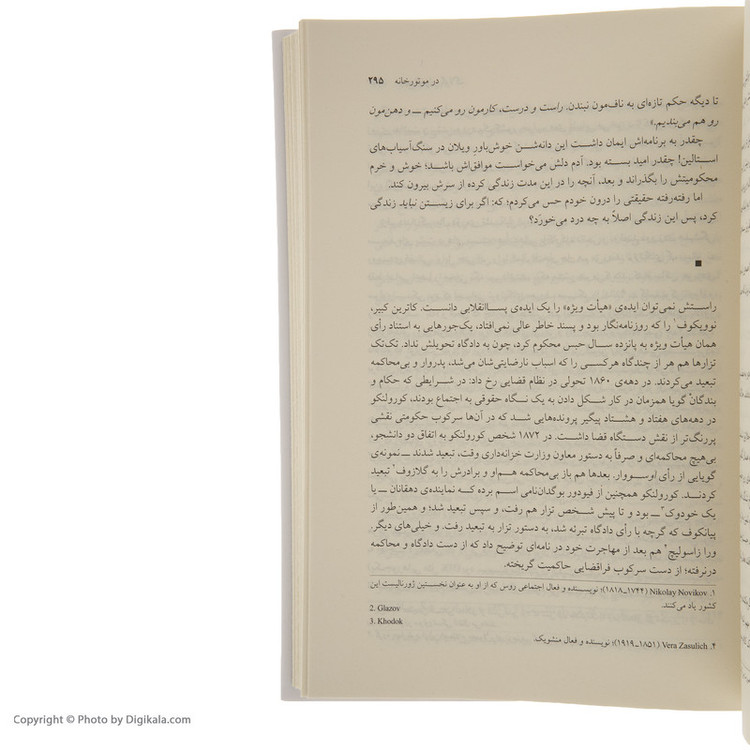 در موتورخانه ۲۹۵
تا دیگه حکم تازه‌ای به ناف‌مون نبندن. راست و درست، کارمون رو می‌کنیم ــ و دهن‌مون
رو هم می‌بندیم.»
چقدر به برنامه‌اش ایمان داشت این دانه‌شن خوش‌باور ویلان در سنگ‌آسیاب‌های
استالین! چقدر امید بسته بود. آدم دلش می‌خواست موافق‌اش باشد؛ خوش و خرم
محکومیتش را بگذراند و بعد، آنچه را در این مدت زندگی کرده از سرش بیرون کند.
اما رفته‌رفته حقیقتی را درون خودم حس می‌کردم؛ که: اگر برای زیستن نباید زندگی
کرد، پس این زندگی اصلاً به چه درد می‌خورَد؟
■
راستش نمی‌توان ایده‌ی «هیأت ویژه» را یک ایده‌ی پساانقلابی دانست. کاترین کبیر،
نوویکوف۱ را که روزنامه‌نگار بود و پسند خاطر عالی نمی‌افتاد، یک‌جورهایی به استناد رأی
همان هیأت ویژه به پانزده سال حبس محکوم کرد، چون به دادگاه تحویلش نداد. تک‌تک
تزارها هم هر از چندگاه هرکسی را که اسباب نارضایتی‌شان می‌شد، پدروار و بی‌محاکمه
تبعید می‌کردند. در دهه‌ی ۱۸۶۰ تحولی در نظام قضایی رخ داد: در شرایطی که حکام و
بندگانْ گویا همزمان در کار شکل دادن به یک نگاه حقوقی به اجتماع بودند، کورولنکو
در دهه‌های هفتاد و هشتاد پیگیر پرونده‌هایی شد که در آن‌ها سرکوب حکومتی نقشی
پررنگ‌تر از نقش دستگاه قضا داشت. در ۱۸۷۲ شخص کورولنکو به اتفاق دو دانشجو،
بی‌هیچ محاکمه‌ای و صرفاً به دستور معاون وزارت خزانه‌داری وقت، تبعید شدند ــ نمونه‌ی
گویایی از رأی اوسووار. بعدها هم باز بی‌محاکمه هم‌او و برادرش را به گلازوف۲ تبعید
کردند. کورولنکو همچنین از فیودور بوگدان‌نامی اسم برده که نماینده‌ی دهقانان ــ یا
یک خودوک۳ ــ بود و تا پیش شخص تزار هم رفت، و سپس تبعید شد؛ و همین‌طور از
پیانکوف که گرچه با رأی دادگاه تبرئه شد، به دستور تزار به تبعید رفت. و خیلی‌های دیگر.
ورا زاسولیچ۴ هم بعد از مهاجرت خود در نامه‌ای توضیح داد که از دست دادگاه و محاکمه
درنرفته؛ از دست سرکوب فراقضایی حاکمیت گریخته.
۱. Nikolay Novikov (۱۷۴۴ـ۱۸۱۸)؛ نویسنده و فعال اجتماعی روس که از او به عنوان نخستین ژورنالیست این
کشور یاد می‌کنند.
2. Glazov
3. Khodok
۴. Vera Zasulich (۱۸۵۱ـ۱۹۱۹)؛ نویسنده و فعال منشویک.
Copyright © Photo by Digikala.com